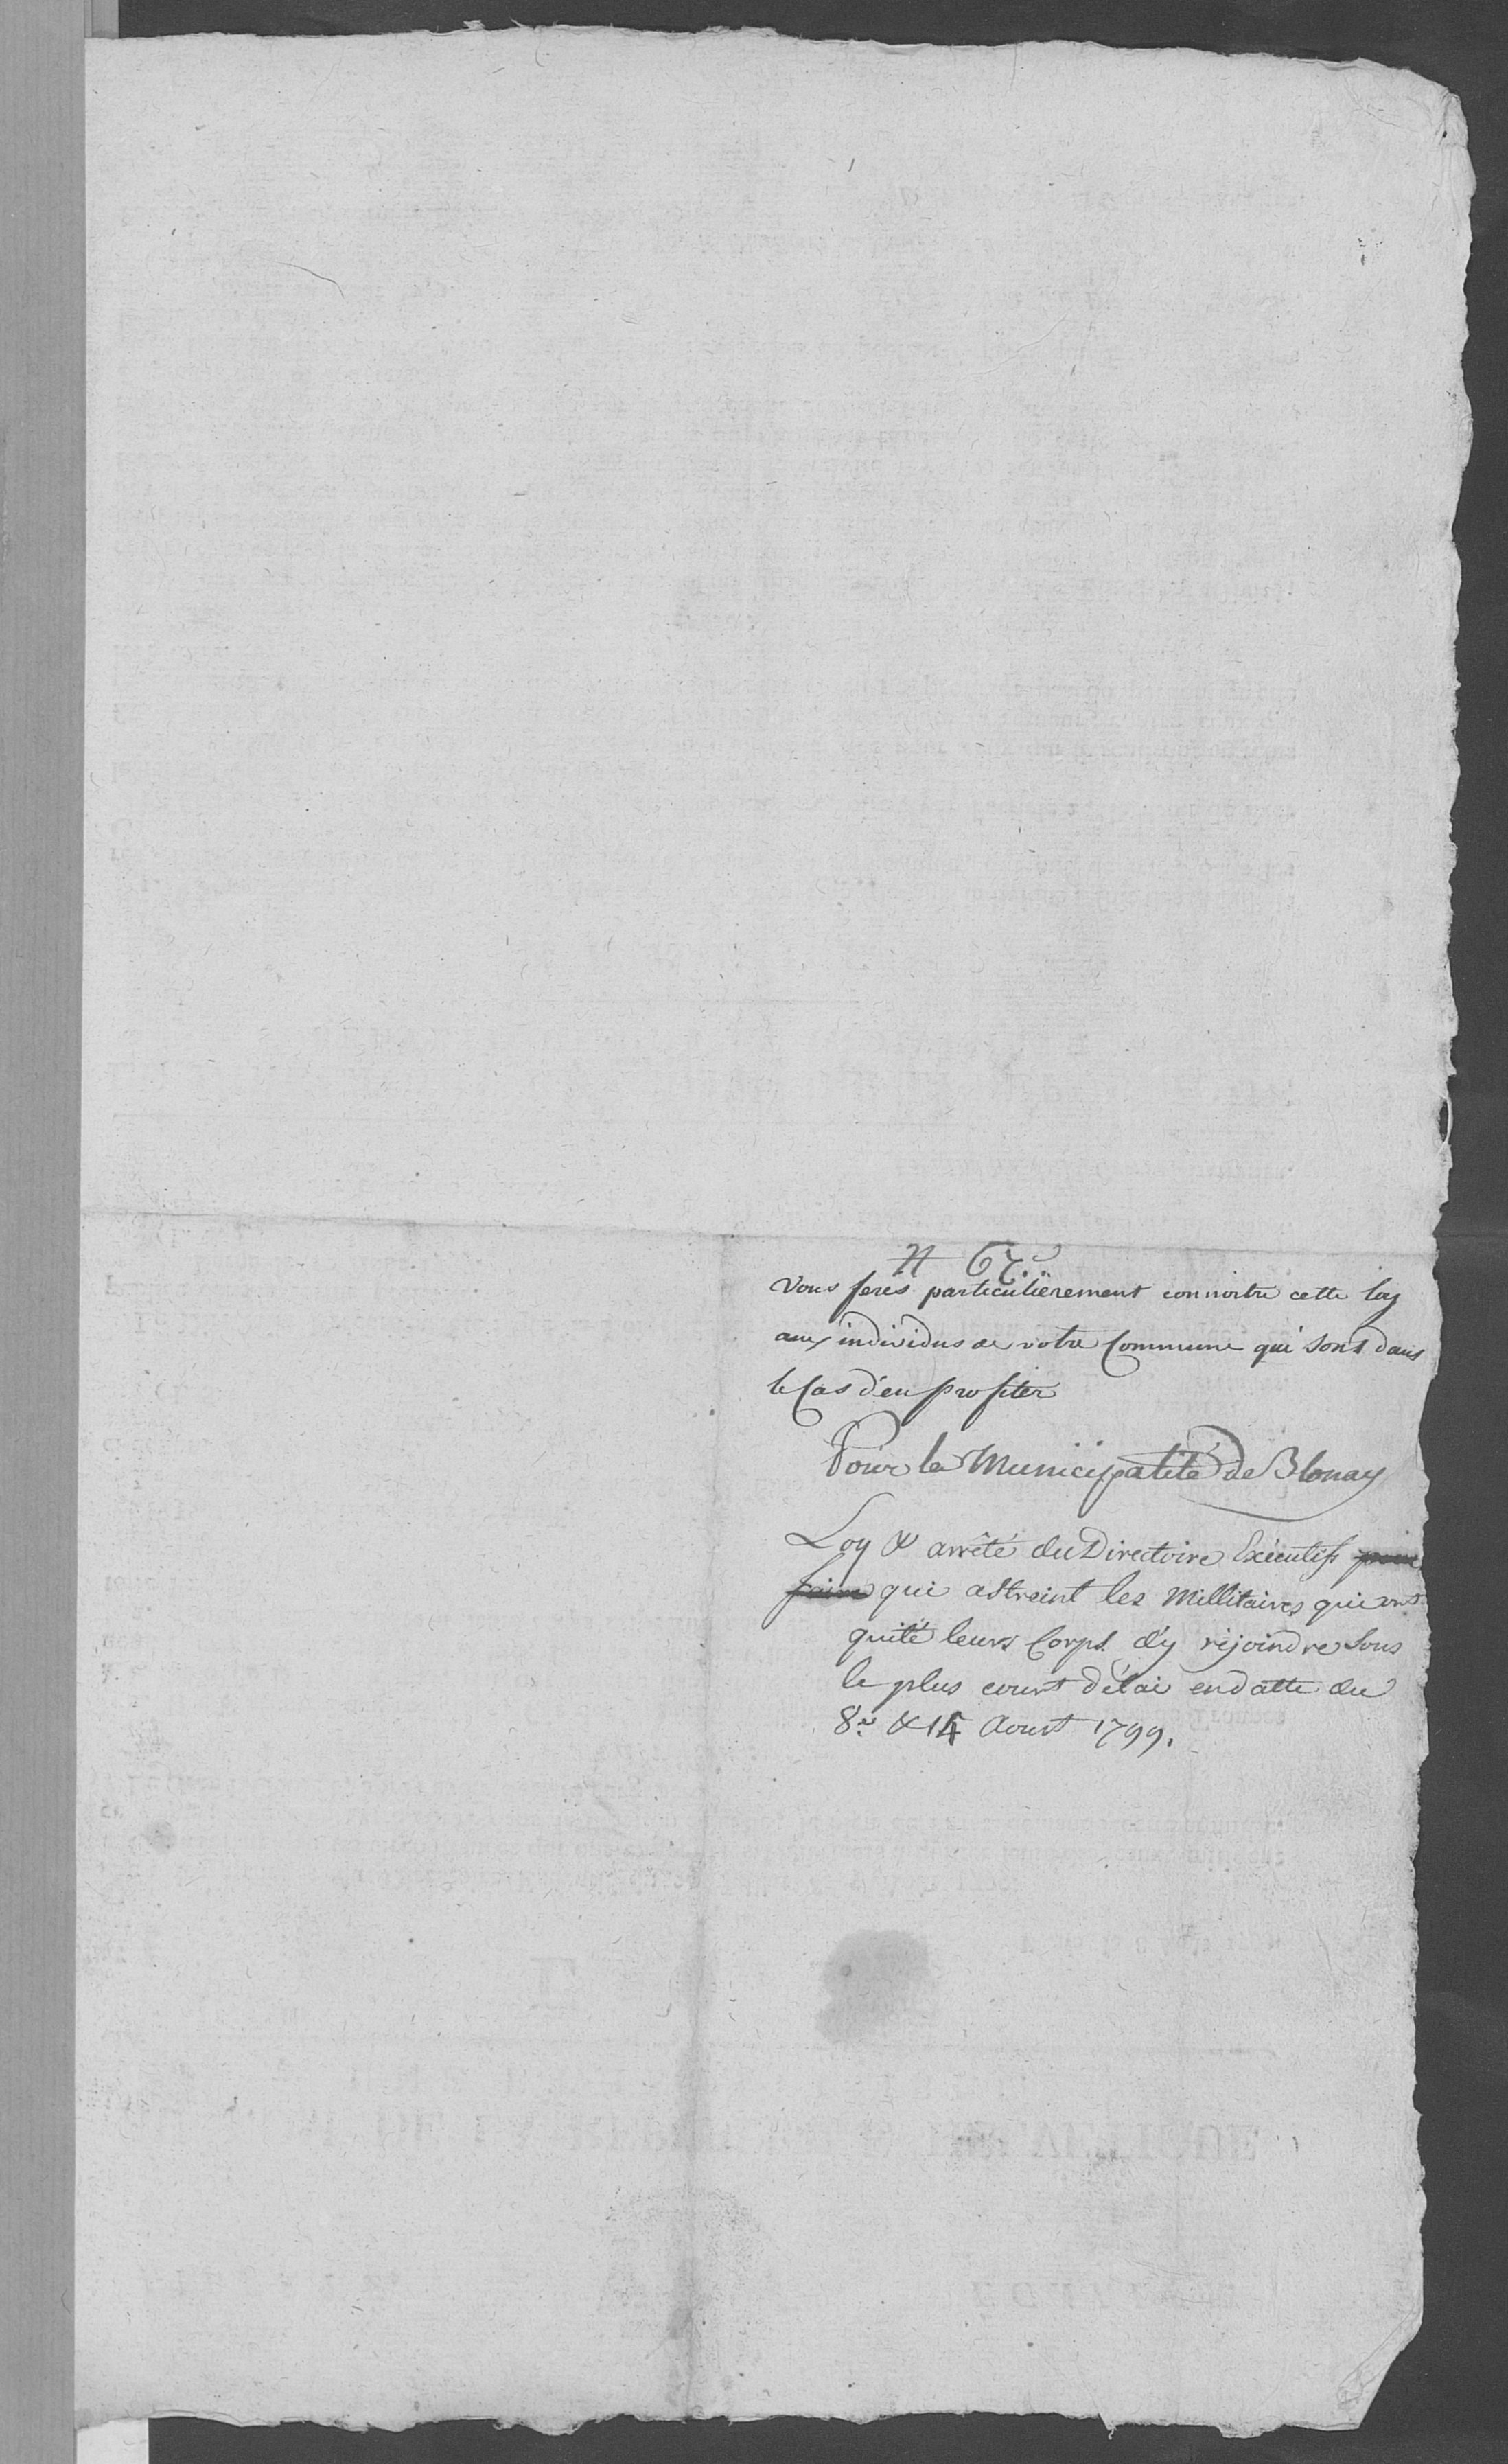 N 67.
Vous ferés particulièrement connoitre cette loy
aux individus de votre Commune qui sont dans
le Cas d'en profiter
Pour la Municipalité de Blonay
Loy & arrêté du Directoire Exécutif pour
faire qui astreint les Millitaires qui ont
quité leurs Corps d'y réjoindre sous
le plus court délai en datte du
8e & 14 Aoust 1799.